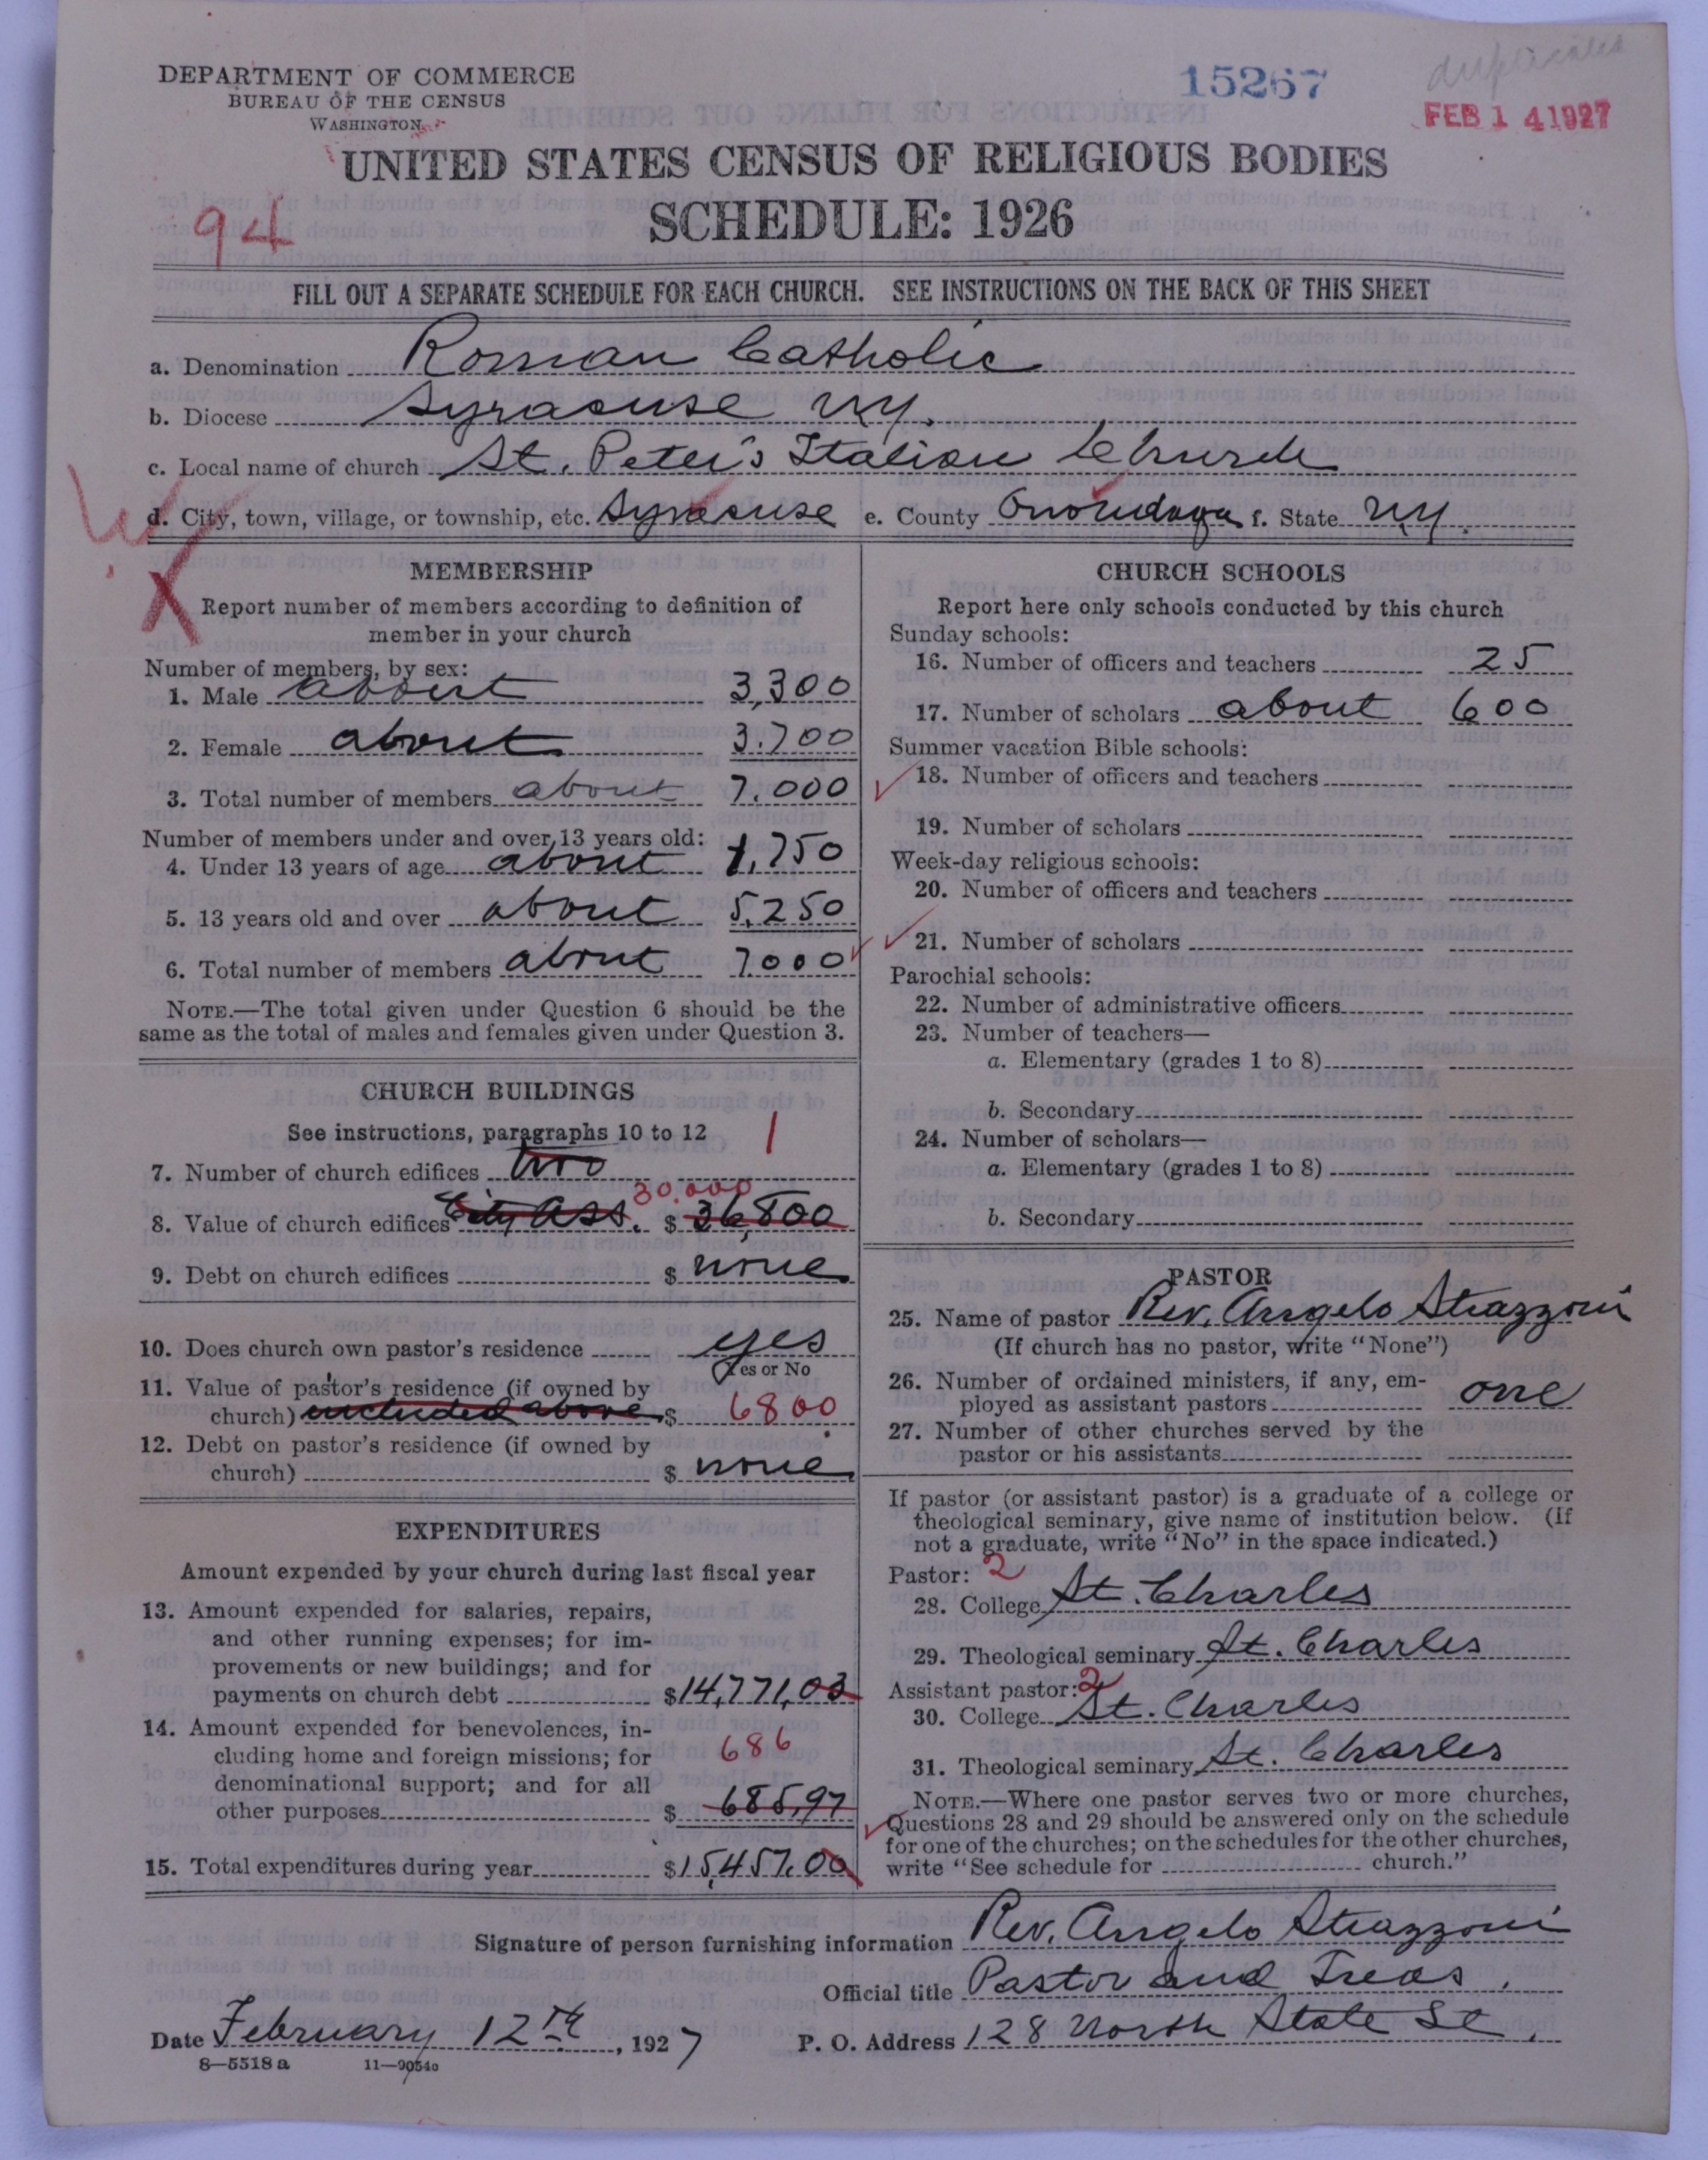 DEPARTMENT OF COMMERCE
BUREAU OF THE CENSUS
WASHINGTON
15267
duplicates
FEB 14 1927
UNITED STATES CENSUS OF RELIGIOUS BODIES
94
SCHEDULE: 1926
FILL OUT A SEPARATE SCHEDULE FOR EACH CHURCH. SEE INSTRUCTIONS ON THE BACK OF THIS SHEET
a. Denomination Roman Catholic
b. Diocese Syracuse N.Y.
c. Local name of church St. Peter's Italian Church
d. City, town, village, or township, etc. Syracuse e. County Onondaga f. State N.Y.
X
MEMBERSHIP
Report number of members according to definition of
member in your church
Number of members, by sex:
1. Male about 3,300
2. Female about 3.700
3. Total number of members about 7.000
Number of members under and over 13 years old:
4. Under 13 years of age about 1,750
5. 13 years old and over about 5,250
6. Total number of members about 7000
NOTE.—The total given under Question 6 should be the
same as the total of males and females given under Question 3.
CHURCH BUILDINGS
See instructions, paragraphs 10 to 12 1
7. Number of church edifices two
30.000
8. Value of church edifices City Ass. $ 36,800
9. Debt on church edifices $ none
10. Does church own pastor's residence yes
Yes or No
11. Value of pastor's residence (if owned by
church) included above $ 6800
12. Debt on pastor's residence (if owned by
church) $ none
EXPENDITURES
Amount expended by your church during last fiscal year
13. Amount expended for salaries, repairs,
and other running expenses; for im-
provements or new buildings; and for
payments on church debt $14,771,03
14. Amount expended for benevolences, in-
cluding home and foreign missions; for 686
denominational support; and for all
other purposes $ 685,97
15. Total expenditures during year $15,457.00
CHURCH SCHOOLS
Report here only schools conducted by this church
Sunday schools:
16. Number of officers and teachers 25
17. Number of scholars about 600
Summer vacation Bible schools:
18. Number of officers and teachers
19. Number of scholars
Week-day religious schools:
20. Number of officers and teachers
21. Number of scholars
Parochial schools:
22. Number of administrative officers
23. Number of teachers—
a. Elementary (grades 1 to 8)
b. Secondary
24. Number of scholars—
a. Elementary (grades 1 to 8)
b. Secondary
PASTOR
25. Name of pastor Rev. Angelo Strazzoni
(If church has no pastor, write "None")
26. Number of ordained ministers, if any, em-
ployed as assistant pastors one
27. Number of other churches served by the
pastor or his assistants
If pastor (or assistant pastor) is a graduate of a college or
theological seminary, give name of institution below. (If
not a graduate, write "No" in the space indicated.)
Pastor: 2
28. College St. Charles
29. Theological seminary St. Charles
Assistant pastor: 2
30. College St. Charles
31. Theological seminary St. Charles
NOTE.—Where one pastor serves two or more churches,
Questions 28 and 29 should be answered only on the schedule
for one of the churches; on the schedules for the other churches,
write "See schedule for church."
Signature of person furnishing information Rev. Angelo Strazzoni
Official title Pastor and Treas.
Date February 12th, 1927 P. O. Address 128 North State St.
8—5518 a 11—9054c